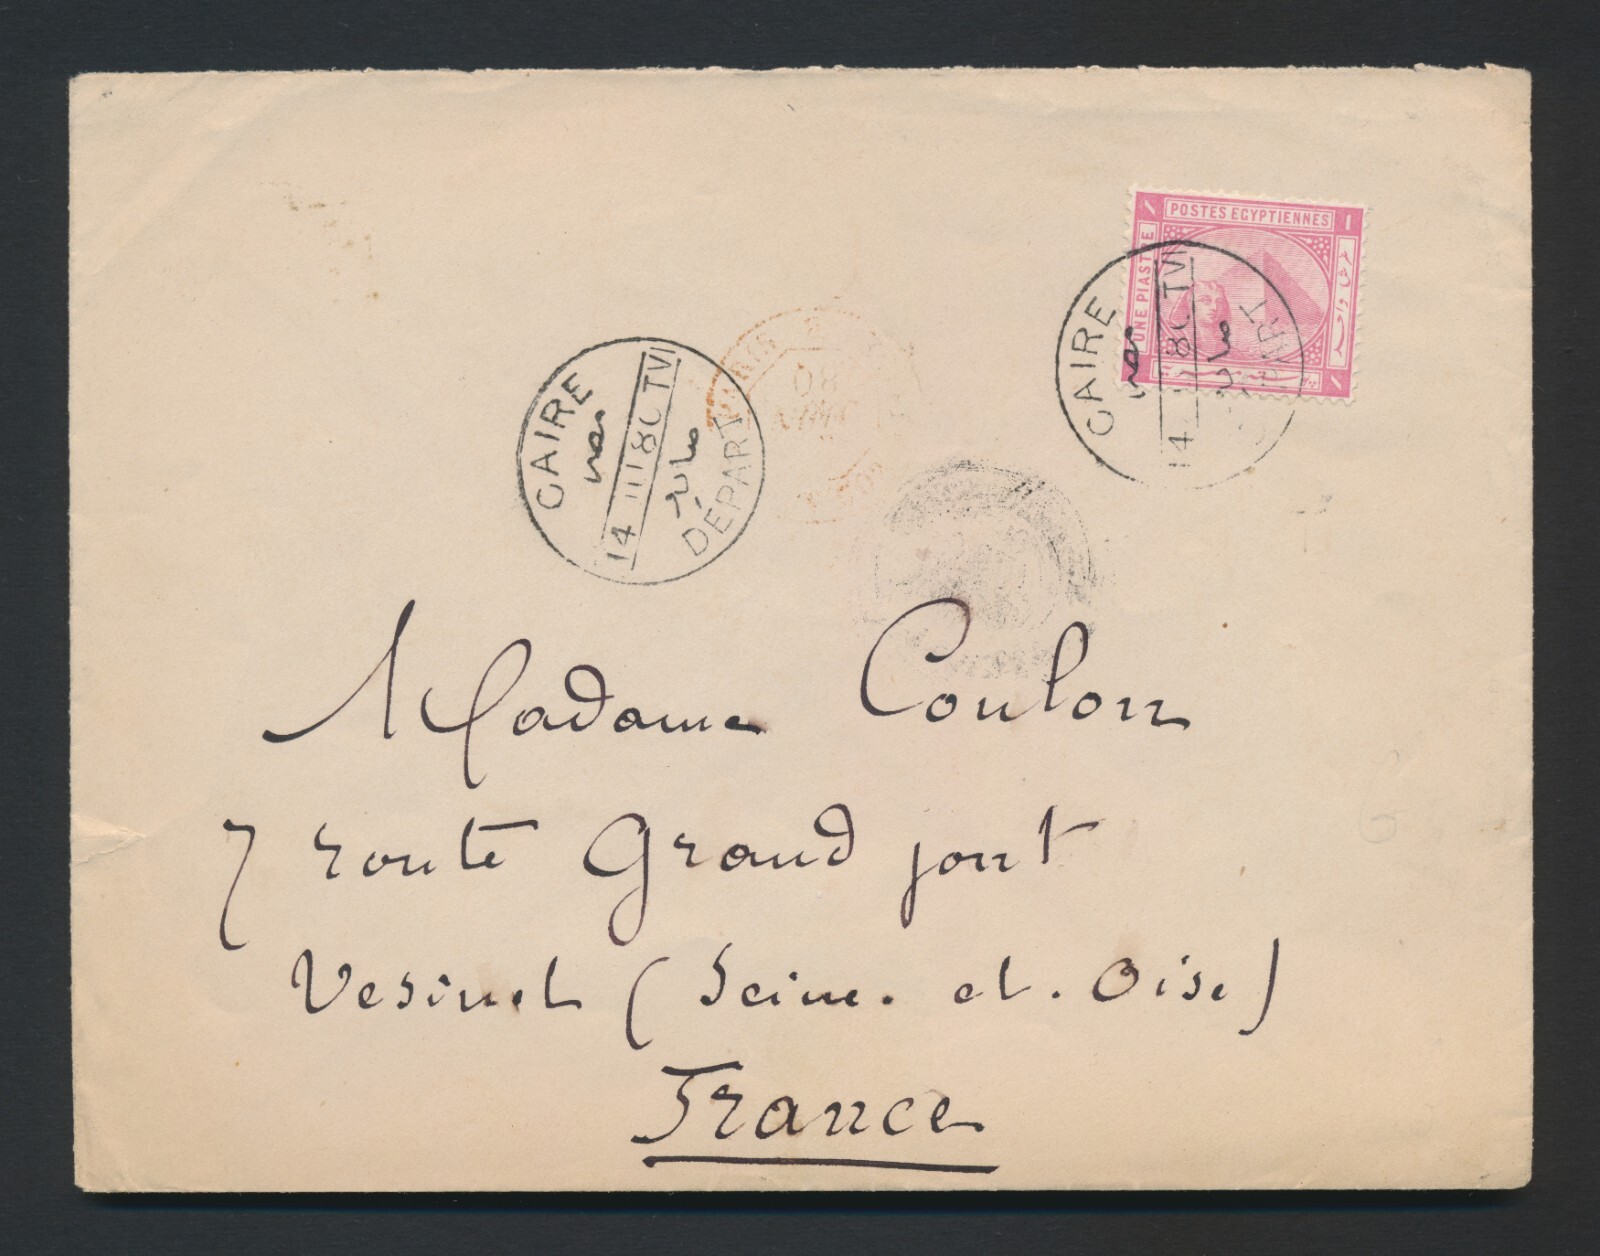 POSTES EGYPTIENNES
UNE PIASTE
غرش واحد
CAIRE
14 III 80 TVI
DÉPART
CAIRE
14
80 TVI
PARIS
80
Madame Coulon
7 route Grand pont
Vesinet (Seine. et. Oise)
France